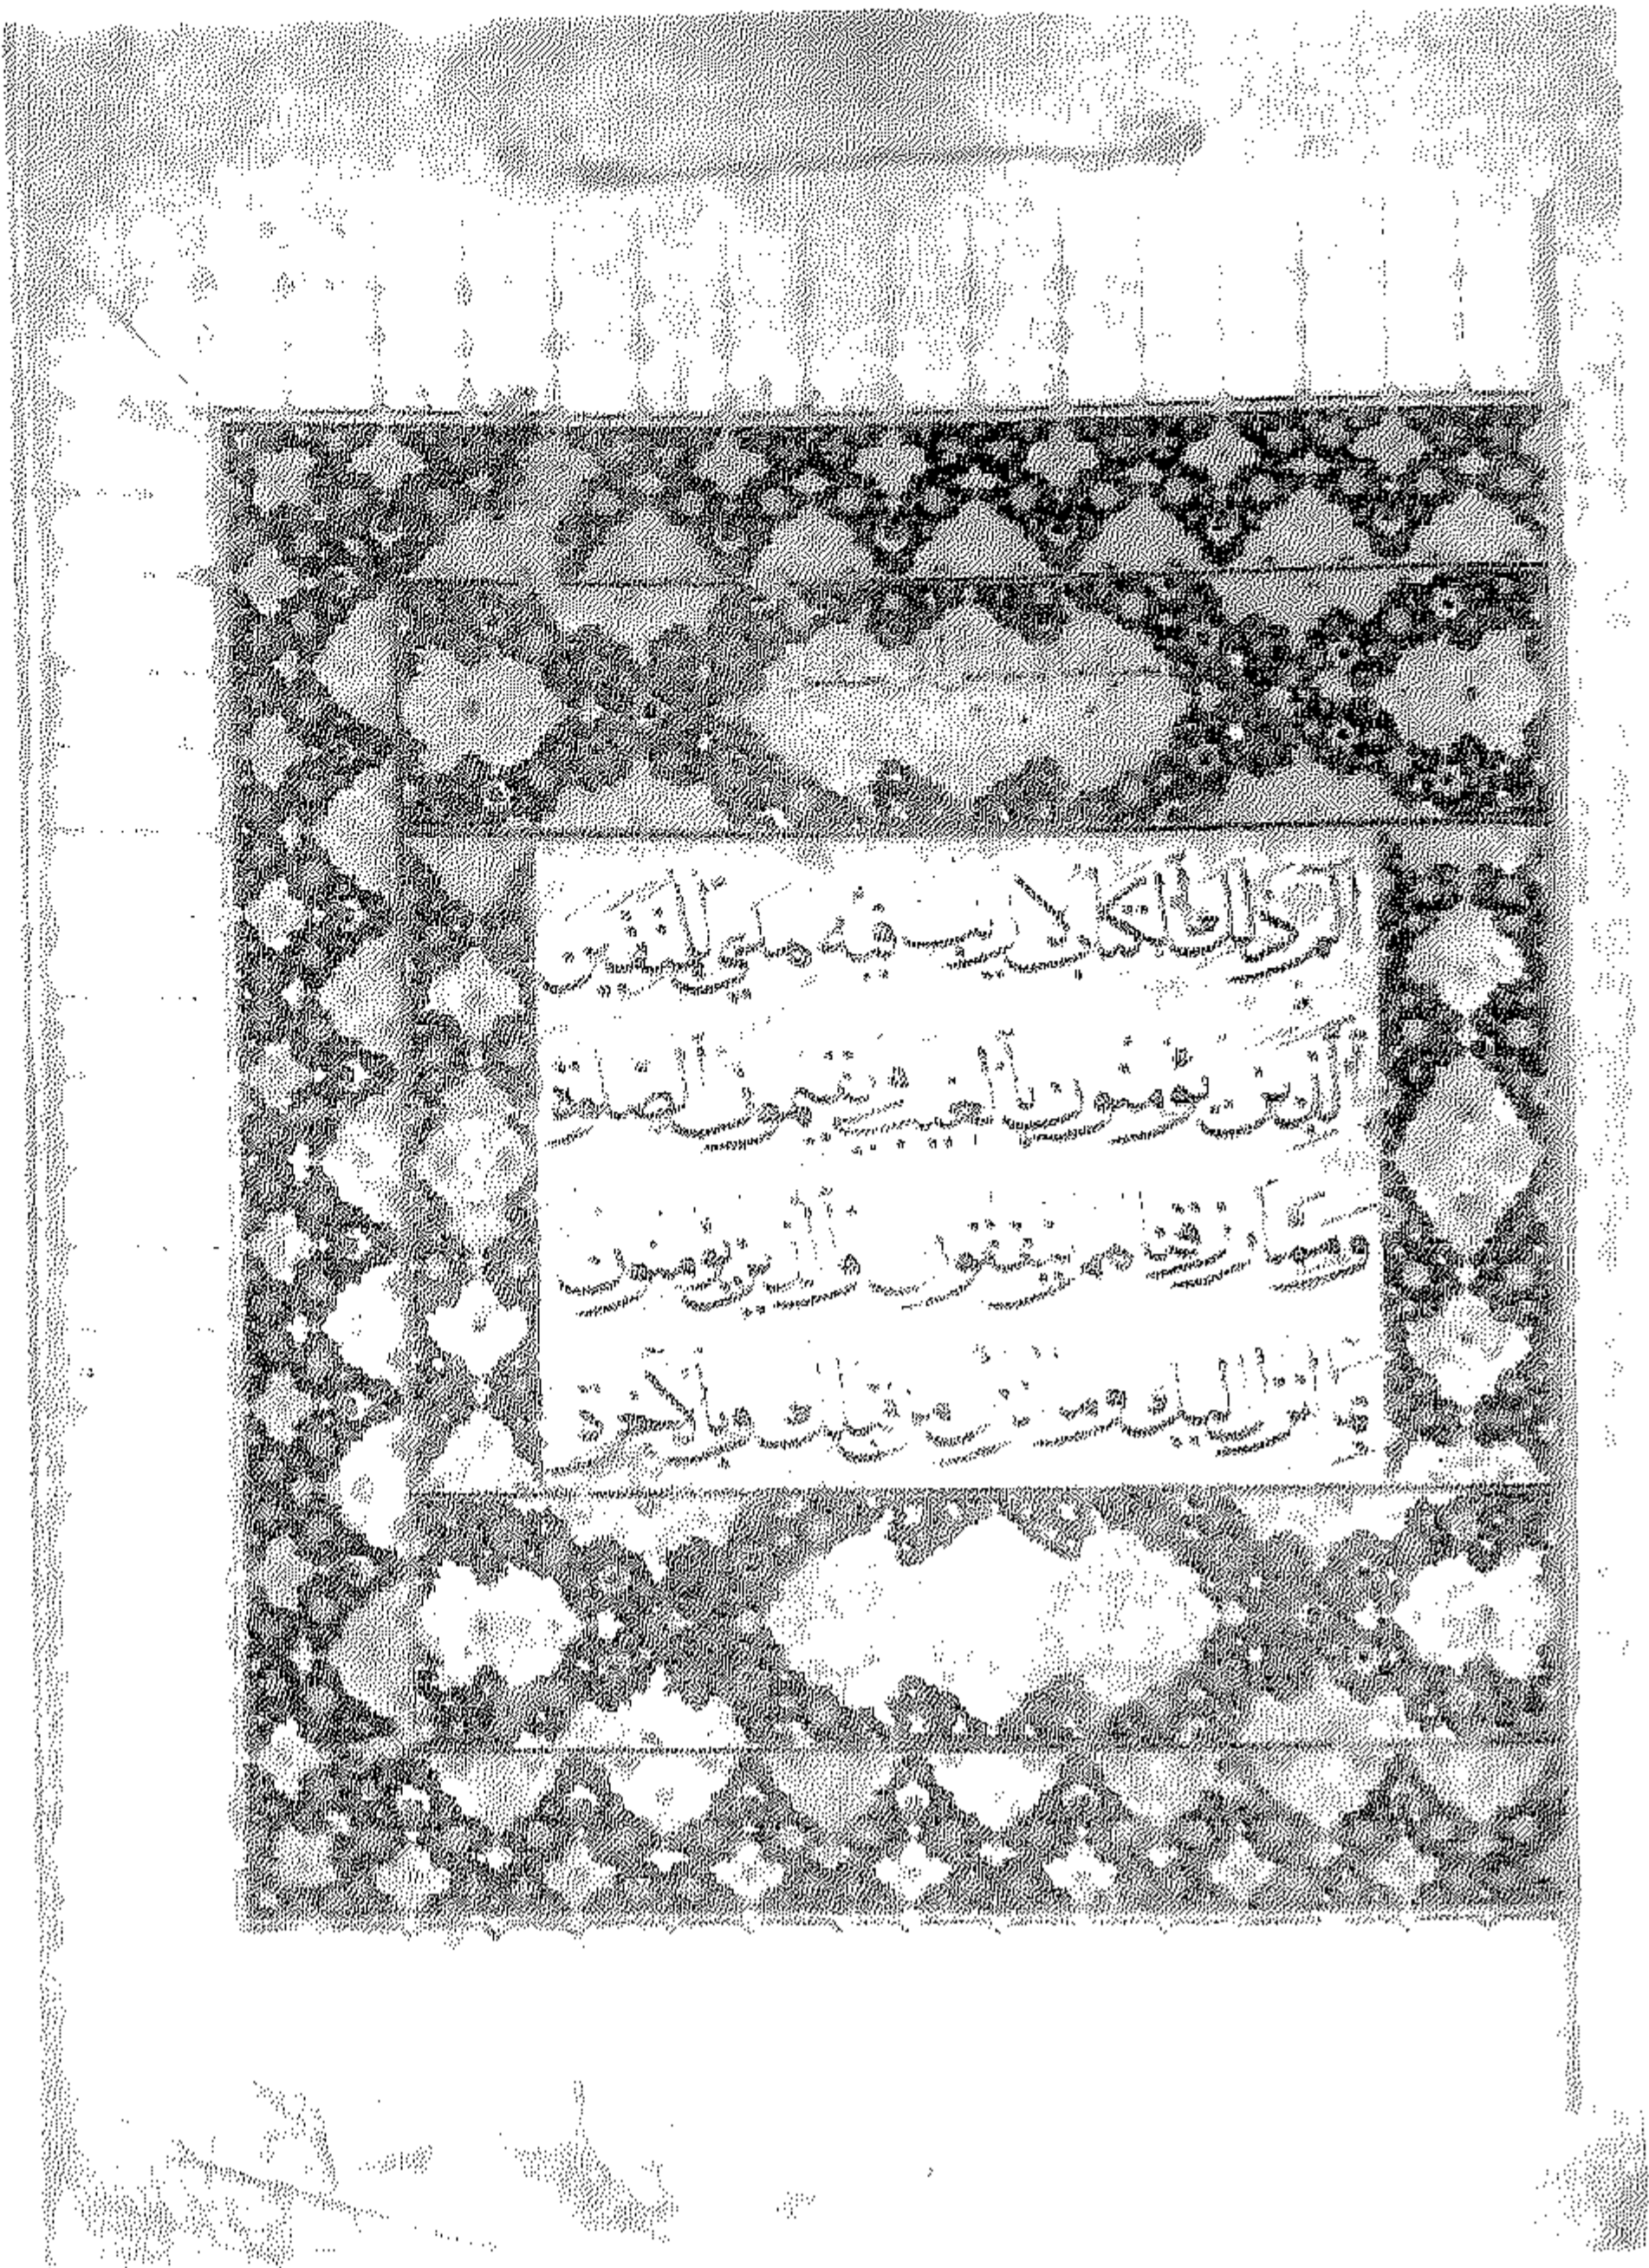 الم ذلك الكتاب لا ريب فيه هدى للمتقين
الذين يؤمنون بالغيب ويقيمون الصلوة
ومما رزقناهم ينفقون والذين يؤمنون
بما انزل اليك وما انزل من قبلك وبالاخرة